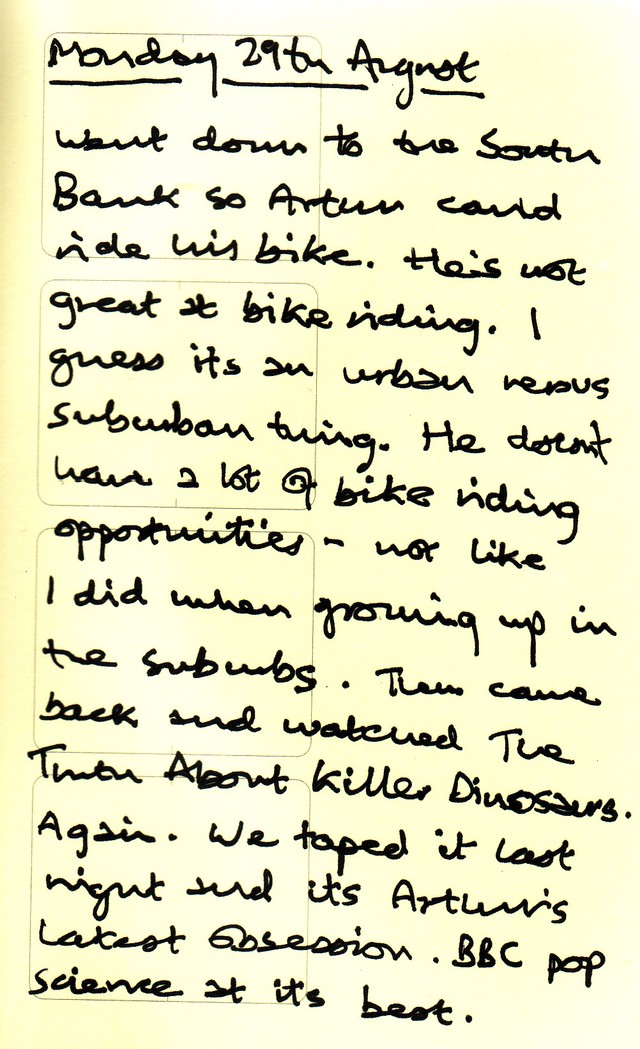 Monday 29th August
went down to the South
Bank so Arthur could
ride his bike. He's not
great at bike riding. I
guess its an urban versus
suburban thing. He doesn't
have a lot of bike riding
opportunities - not like
I did when growing up in
the suburbs. Then came
back and watched The
Truth About Killer Dinosaurs.
Again. We taped it last
night and its Arthur's
Latest Obsession. BBC pop
science at it's best.